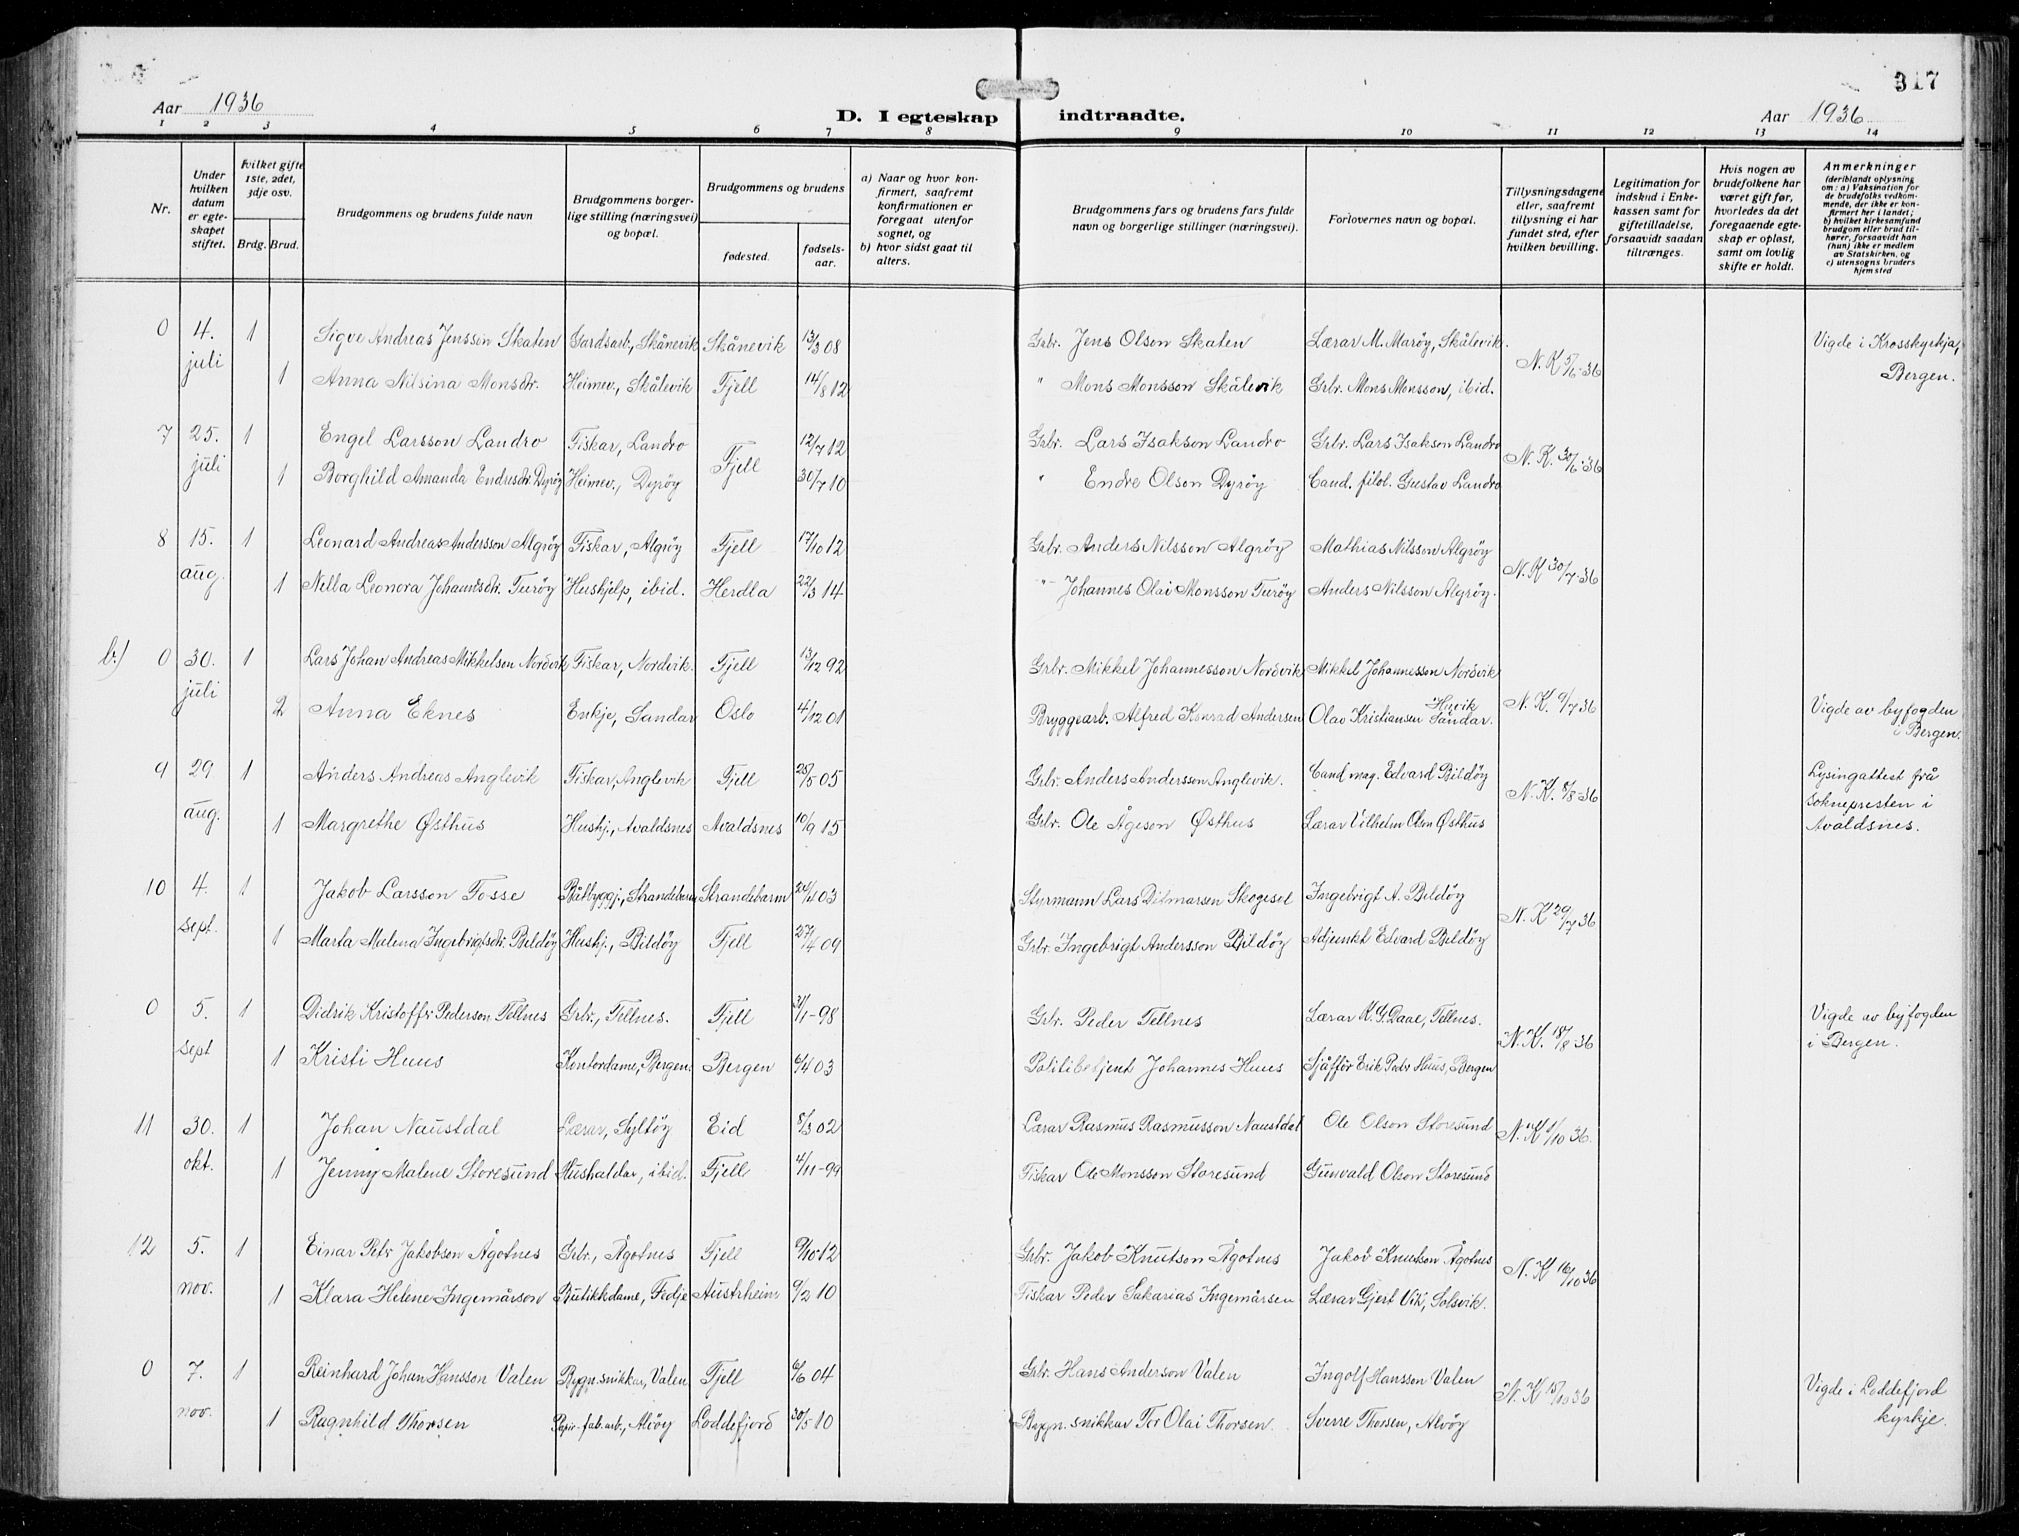 317
Aar 1936
D. I egteskap indtraadte.
Aar 1936
1 2 3 4 5 6 7 8 9 10 11 12 13 14
Nr.
Under hvilken datum er egteskapet stiftet.
Hvilket gifte 1ste, 2det, 3dje osv.
Brdg. Brud.
Brudgommens og brudens fulde navn
Brudgommens borgerlige stilling (næringsvei) og bopæl.
Brudgommens og brudens
fødested.
fødselsaar.
a) Naar og hvor konfirmert, saafremt konfirmationen er foregaat utenfor sognet, og
b) hvor sidst gaat til alters.
Brudgommens fars og brudens fars fulde navn og borgerlige stillinger (næringsvei).
Forlovernes navn og bopæl.
Tillysningsdagene eller, saafremt tillysning ei har fundet sted, efter hvilken bevilling.
Legitimation for indskud i Enkekassen samt for giftetilladelse, forsaavidt saadan tiltrænges.
Hvis nogen av brudefolkene har været gift før, hvorledes da det foregaaende egteskap er opløst, samt om lovlig skifte er holdt.
Anmerkninger
(deriblandt oplysning om: a) Vaksination for de brudefolks vedkommende, der ikke er konfirmert her i landet; b) hvilket kirkesamfund brudgom eller brud tilhører, forsaavidt han (hun) ikke er medlem av Statskirken, og c) utensogns bruders hjemsted
0 4. juli 1 Sigve Andreas Jenssen Skaten Gardsarb., Skånevik Skånevik 13/3 08 Grbr. Jens Olson Skaten Lærar M. Marøy, Skålevik. N. K. 5/6-36 Vigde i Krosskyrkja, Bergen.
1 Anna Nilsina Monsdtr. Heimev., Skålevik Fjell 14/8 12 " Mons Monsson Skålevik Grbr. Mons Monsson, ibid.
7 25. juli 1 Engel Larsson Landro Fiskar, Landro Fjell 12/7 12 Grbr. Lars Isakson Landro Grbr. Lars Isakson Landro N. K. 30/6-36
1 Borghild Amanda Endresdtr. Dyrøy Heimev., Dyrøy 30/7 10 " Endre Olson Dyrøy Cand. filol. Gustav Landro
8 15. aug. 1 Leonard Andreas Andersson Algrøy Fiskar, Algrøy Fjell 17/10 12 Grbr. Anders Nilsson Algrøy Mathias Nilsson Algrøy N. K 30/7-36
1 Nella Leonora Johannsdtr. Turøy Hushjelp, ibid. Herdla 22/3 14 " Johannes Olai Monsson Turøy Anders Nilsson Algrøy.
b.) 0 30. juli 1 Lars Johan Andreas Mikkelsen Nordvik Fiskar, Nordvik. Fjell 13/12 92 Grbr. Mikkel Johannesson Nordvik Mikkel Johannesson Nordvik N. K. 9/7 36
2 Anna Eknes Enkje, Sandar Oslo 4/12 01 Bryggearb. Alfred Konrad Andersen Olav Kristiansen Sandar. Vigde av byfogden i Bergen.
9 29 aug. 1 Anders Andreas Anglevik Fiskar, Anglevik Fjell 28/8 05 Grbr. Anders Andersson Anglevik. Cand mag. Edvard Bildøy N. K. 8/8-36 Lysingattest frå sokneprésten i Avaldsnes.
1 Margrethe Østhus Hushj., Avaldsnes Avaldsnes 10/9 15 Grbr. Ole Ågeson Østhus Lærar Vilhelm Olson Østhus
10 4. sept. 1 Jakob Larsson Fosse Båtbyggj., Strandebarm Strandebarm 24/4 03 Styrmann Lars Ditmarsen Skogesel Ingebrigt A. Bildøy N. K 29/7 36
1 Marta Malena Ingebrigtsdtr. Bildøy Hushj., Bildøy Fjell 27/4 09 Grbr. Ingebrigt Andersson Bildøy Adjunkt Edvard Bildøy
0 5. sept 1 Didrik Kristoffer Pederson Tellnes Grbr., Tellnes. Fjell 31/1-98 Grbr. Peder Tellnes Lærar K. G. Daae, Tellnes. N. K. 18/8 36 Vigde av byfogden i Bergen.
1 Kristi Huus Kontordame, Bergen. Bergen 6/4 03 Politibetjent Johannes Huus Sjåffør Erik Pedr Huus, Bergen
11 30. okt. 1 Johan Naustdal Lærar, Syltøy Eid 8/3 02 Lærar Rasmus Rasmusson Naustdal Ole Olson Storesund N. K 1/10 36.
1 Jenny Malene Storesund Hushaldar, ibid. Fjell 4/11-99 Fiskar Ole Monsson Storesund Gunvald Olson Storesund
12 5. nov. 1 Einar Petr Jakobson Ågotnes Grbr., Ågotnes Fjell 9/10-12 Grbr. Jakob Knutson Ågotnes Jakob Knutson Ågotnes N. K 16/10 36
1 Klara Helene Ingemårson Butikkdame, Fedje Austrheim 9/2 10 Fiskar Peder Sakarias Ingemårsen Lærar Gjert Vik, Solsvik.
0 7. nov. 1 Reinhard Johan Hansson Valen Bygn.snikkar, Valen Fjell 6/6 04 Grbr. Hans Anderson Valen Ingolf Hansson Valen N. K 15/10 36 Vigde i Loddefjord kyrkje.
1 Ragnhild Thorsen Papir-fab.arb., Alvøy Loddefjord 30/5 10 Bygn. snikkar Tor Olai Thorsen. Sverre Thorsen, Alvøy